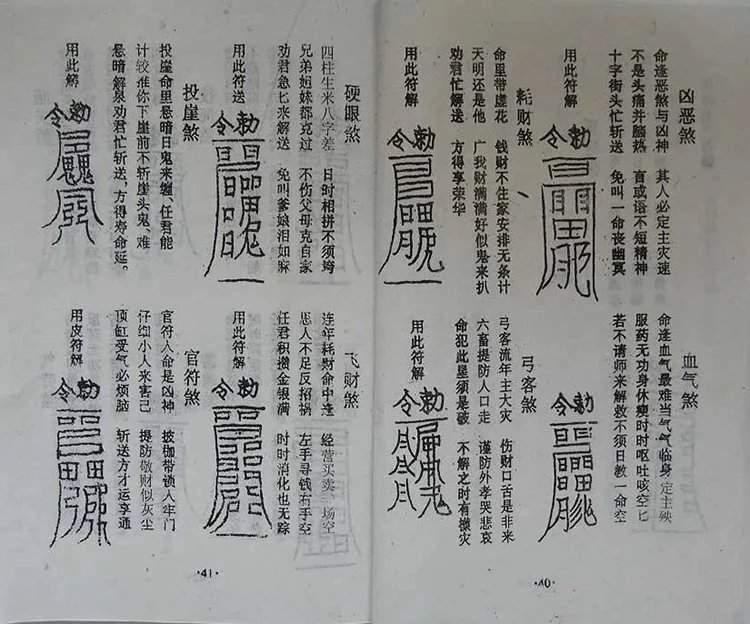 凶恶煞
命逢恶煞与凶神 其人必定主灾速
不是头痛并脑热 盲或语不短精神
十字街头忙斩送 免叫一命丧幽冥
用此符解
勅令
耗财煞
命里带虚花 钱财不住家安排无条计
天明还是他 广我财满满好似鬼来扒
劝君忙解送 方得享荣华
用此符解
勅令
血气煞
命逢血气最难当气气临身定主殃
服药无功身休瘦时时呕吐咳空匕
若不请师来解救不须日教一命空
用此符解
勅令
弓客煞
弓客流年主大灾 伤财口舌是非来
六畜提防人口走 谨防外孝哭悲哀
命犯此星须是破 不解之时有横灾
用此符解
勅令
·40·
硬眼煞
四柱生米八字差 日时相拼不须垮
兄弟姐妹都克过 不伤父母克自家
劝君急匕来解送 免叫爹娘泪如麻
用此符送
勅令
投崖煞
投崖命里悬暗日鬼来缠、任君能
计较难你下崖前不斩崖头鬼、难
悬暗解泉劝君忙斩送、方得寿命延。
用此解
勅令
飞财煞
连年耗财命中逢 经营买卖一场空
思人不足反招祸 左手寻钱右手空
任君积攒金银满 时时消化也无踪
用此符解
勅令
官符煞
官符入命是凶神 披枷带锁入牢门
仔细小人来害己 提防敬财似灰尘
顶缸受气必烦脑 斩送方才运享通
用皮符解
勅令
·41·